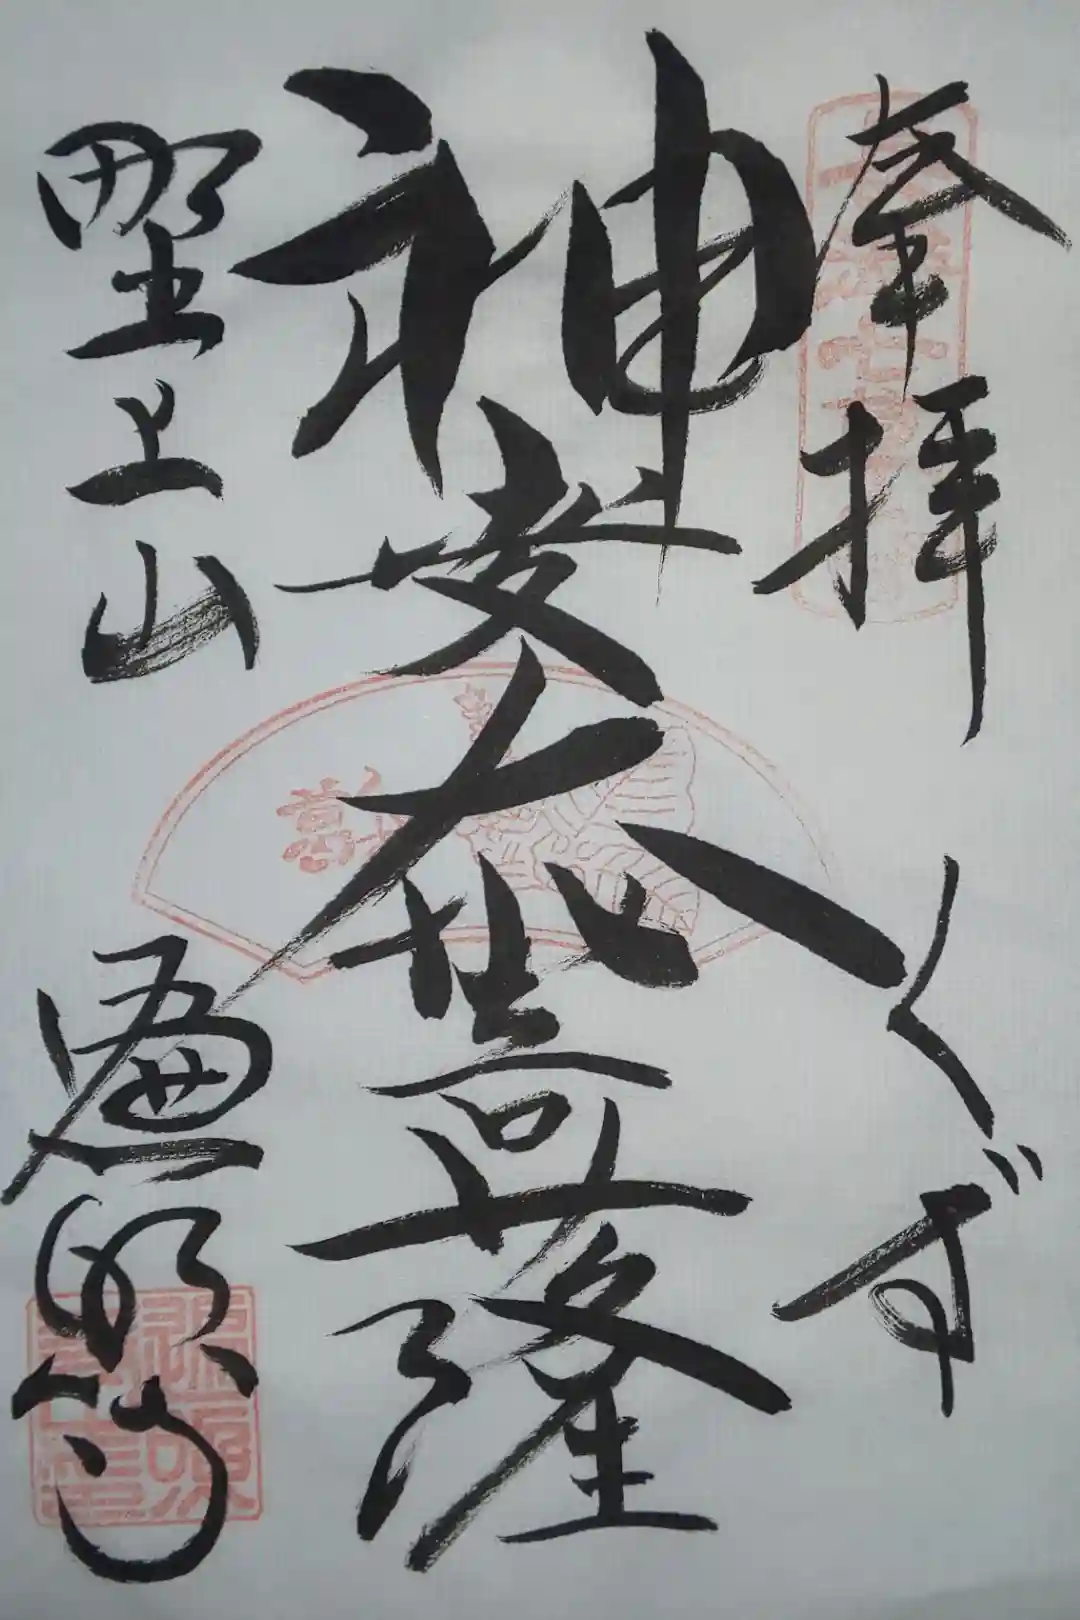 奉拝　くず
神変大菩薩
野上山　遍照寺